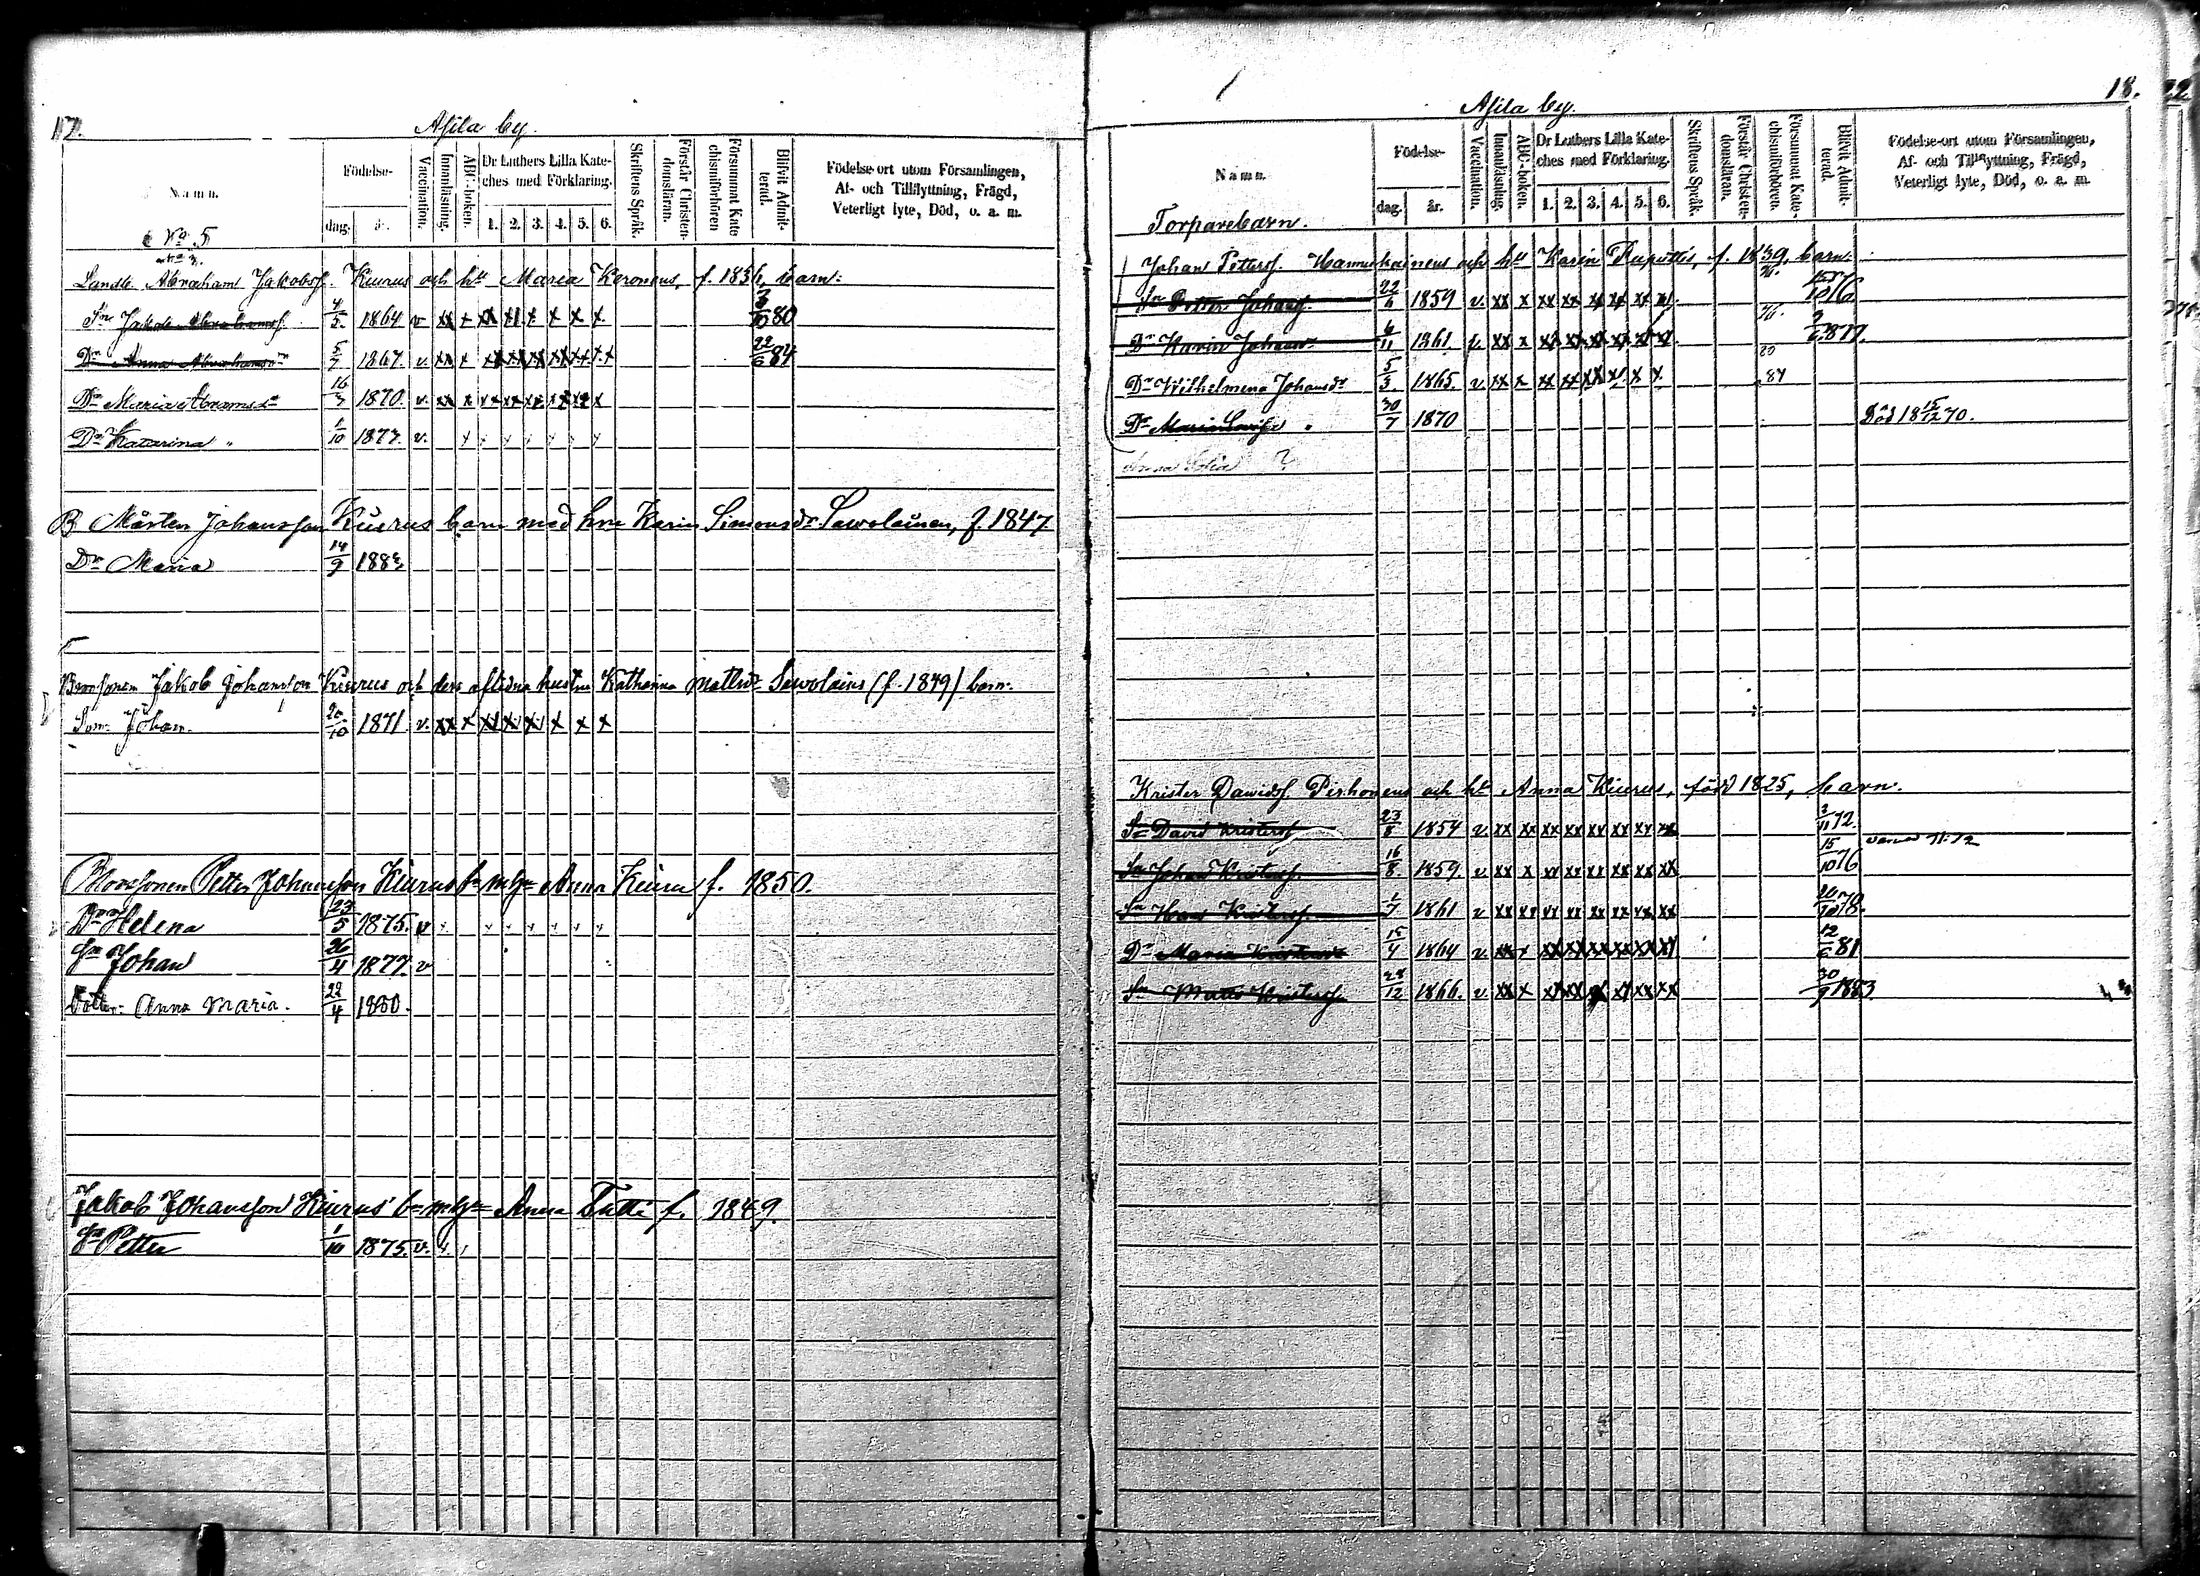 17.
Asila by.
Namn.
Födelse-
dag.
år.
Vaccination.
Innanläsning.
ABC-boken.
Dr Luthers Lilla Kate-
ches med Förklaring.
1. 2. 3. 4. 5. 6.
Skriftens Språk.
Förstår Christen-
domsläran.
Försummat Kate
chismiförhören
Blifvit Admit-
terad.
Födelse-ort utom Församlingen,
Af- och Tillflyttning, Frägd,
Veterligt lyte, Död, o. a. m.
No. 5
Landb. Abraham Jakobsf. Kiurus och ht Maria Keronens, f. 1836, barn:
Sn Jakob Abrahamsf. 4/5. 1864 v xx x xx xx x x x x 3/10 80
Dr Anna Abrahamsdr 5/7 1867. v. xx x xx xx xx xx xx xx 22/6 84
Dr Maria Abramsdr 16/3 1870. v. xx x xx xx xx xx xx x
Dr Katarina " 1/10 1877. v. x x x x x x x
B Mårten Johansson Kiurus barn med hn Karin Simonsdr Sawolainen, f. 1847.
Dr Maria 14/9 1883
Brorsonen Jakob Johansson Kiurus och dess aflidna hustru Katharina Mattsdr Sawolains (f. 1849) barn.
Son: Johan. 20/10 1871 v. xx x xx xx xx x x x
Brorsonen Petter Johansson Kiurus bn m hn Anna Kiuru f. 1850.
Dr Helena 23/5 1875. v x x x x x x x
Sn Johan 26/4 1877. v
Dotter: Anna Maria. 22/4 1880.
Jakob Johansson Kiurus bn m hn Anna Tutti f. 1849.
Sn Petter 1/10 1875. v. x x
18.
Asila by.
Namn.
Torparebarn.
Födelse-
dag.
år.
Vaccination.
Innanläsning.
ABC-boken.
Dr Luthers Lilla Kate-
ches med Förklaring.
1. 2. 3. 4. 5. 6.
Skriftens Språk.
Förstår Christen-
domsläran.
Försummat Kate-
chismiförhören.
Blifvit Admit-
terad.
Födelse-ort utom Församlingen,
Af- och Tillflyttning, Frägd,
Veterligt lyte, Död, o. a. m.
Johan Pettersf. Hannukainens och ht Karin Rapottis, f. 1839, barn:
Sn Petter Johansf. 22/6 1859 v. xx x xx xx xx xx xx xx 76. 15/10 76
Dr Karin Johansdr 6/11 1861 v. xx x xx xx xx xx xx xx 76. 9/6 1877.
Dr Wilhelmina Johansdr 5/3. 1865. v xx x xx xx xx xx x x 84
Dr Maria Lovisa " 30/7 1870 Död 18 15/12 70.
Anna Sofia ?
Krister Davidsf. Pirhonens och ht Anna Kiurus, född 1825, barn.
Sn David Kristersf. 23/8 1854 v. xx xx xx xx xx xx xx xx 3/11 72.
Sn Johan Kristersf. 16/8. 1859. v xx x xx xx xx xx xx xx 15/10 76
Sn Hans Kristersf. 1/7 1861 v xx xx xx xx xx xx xx xx 20/10 78.
Dr Maria Kristersdr 15/4 1864 v. xx x xx xx xx xx xx xx 12/6 81
Sn Matts Kristersf. 28/12 1866. v xx x xx xx xx xx xx xx 30/9 1883
22